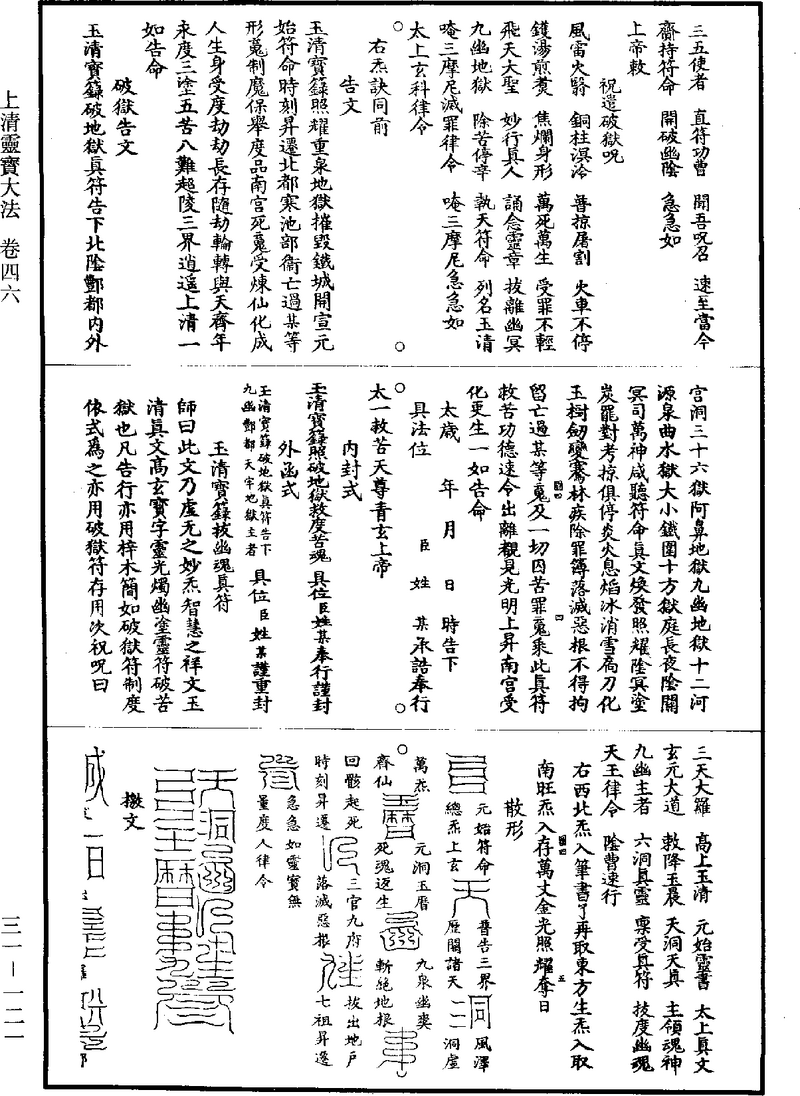 上清靈寶大法 卷四六
三一—一二一
三五使者 直符功曹 聞吾呪召 速至當今
齎持符命 開破幽陰 急急如
上帝敕
祝遣破獄呪
風雷火翳 銅柱溟泠 普掠屠割 火車不停
鑊湯煎煑 焦爛身形 萬死萬生 受罪不輕
飛天大聖 妙行真人 誦念靈章 拔離幽冥
九幽地獄 除苦停辛 執天符命 列名玉清
唵三摩尼滅罪律令 唵三摩尼急急如
太上玄科律令
右炁訣同前
告文
玉清寶籙照耀重泉地獄摧毀鐵城開宣元
始符命時刻昇遷北都寒池部衛亡過某等
形䰟制魔保舉度品南宮死䰟受煉仙化成
人生身受度劫劫長存隨劫輪轉與天齊年
永度三塗五苦八難超陵三界逍遥上清一
如告命
破獄告文
玉清寶籙破地獄真符告下北陰酆都内外
宫洞三十六獄阿鼻地獄九幽地獄十二河
源泉曲水獄大小鐵圍十方獄庭長夜陰關
冥司萬神咸聽符命真文煥發照耀陰冥塗
炭罷對考掠俱停炎火息熖冰消雪高刀化
玉樹劒變騫林疾除罪簿落滅惡根不得拘
留亡過某等䰟及一切囚苦罪䰟乘此真符
救苦功德速令出離覩見光明上昇南宫受
化更生一如告命
太歲 年 月 日 時告下
具法位 臣 姓 某承誥奉行
太一救苦天尊青玄上帝
内封式
玉清寶籙照破地獄救度苦魂 具位臣姓某奉行謹封
外函式
玉清寶籙破地獄真符告下
九幽酆都天牢地獄主者 具位臣姓某謹重封
玉清寶籙拔幽魂真符
師曰此文乃虚无之妙炁智慧之祥文玉
清真文高玄寶字靈光燭幽塗靈符破苦
獄也凡告行亦用梓木簡如破獄符制度
依式爲之亦用破獄符存用次祝呪曰
三天大羅 高上玉清 元始靈書 太上真文
玄元大道 敕降玉晨 天洞天真 主領魂神
九幽主者 六洞真靈 禀受真符 拔度幽魂
天王律令 陰曹速行
右西北炁入筆書了再取東方生炁入取
南旺炁入存萬丈金光照耀奪日
散形
元始符命 普告三界 風澤
總炁上玄 歷關諸天 洞虚
萬炁 元洞玉曆 九泉幽爽
齊仙 死魂返生 斬絶地根
回骸起死 三官九府 拔出地戶
時刻昇遷 落滅惡根 七祖昇遷
急急如靈寶無
量度人律令
檄文